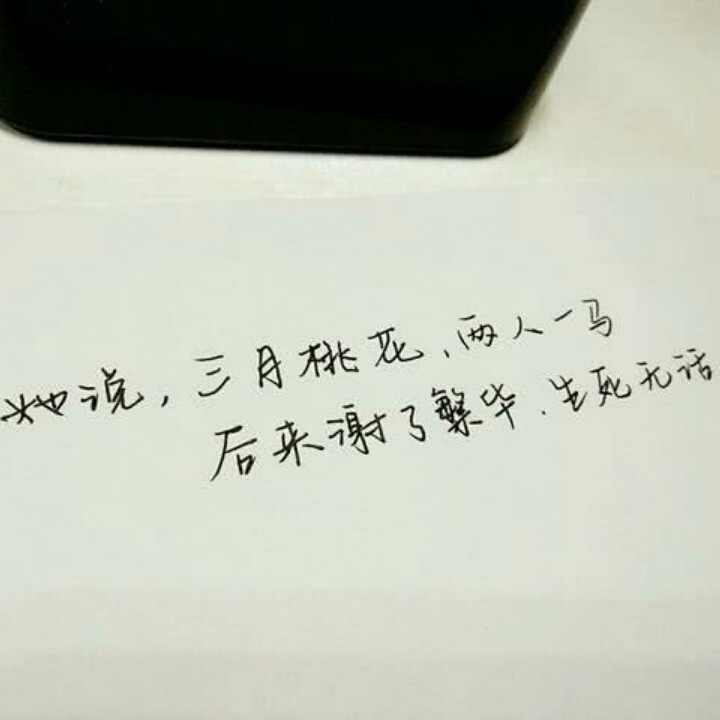 她说，三月桃花，两人一马
后来谢了繁华．生死无话